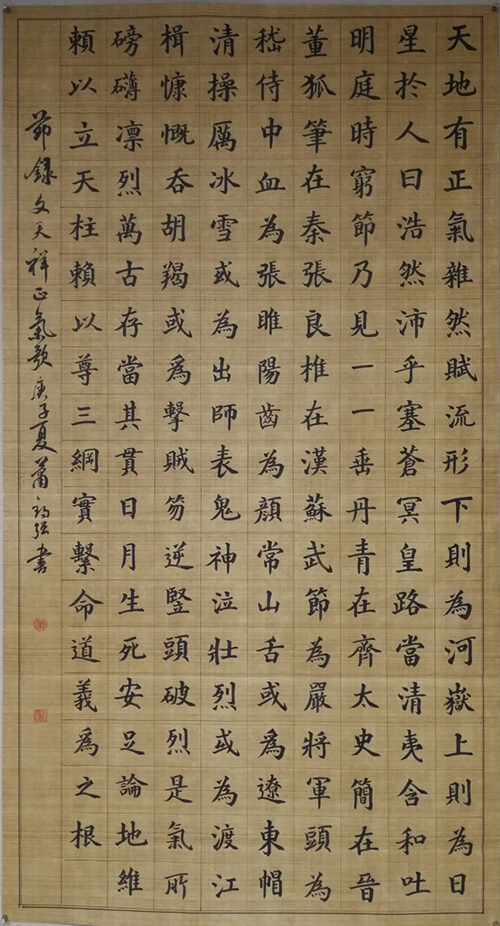 天地有正氣雜然賦流形下則為河嶽上則為日
星於人曰浩然沛乎塞蒼冥皇路當清夷含和吐
明庭時窮節乃見一一垂丹青在齊太史簡在晉
董狐筆在秦張良椎在漢蘇武節為嚴將軍頭為
嵇侍中血為張睢陽齒為顏常山舌或為遼東帽
清操厲冰雪或為出師表鬼神泣壯烈或為渡江
楫慷慨吞胡羯或爲擊賊笏逆豎頭破烈是氣所
磅礡凛烈萬古存當其貫日月生死安足論地維
賴以立天柱賴以尊三綱實繫命道義爲之根
節録文天祥正氣歌庚子夏蕭弦書